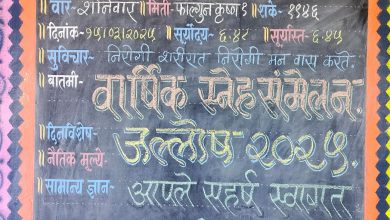 ॥वार- शनिवार॥मिती- फाल्गुन कृष्ण१॥शके- १९४६
॥दिनांक-१५।०३।२०२५॥सूर्योदय- ६:४८॥सूर्यास्त- ६:४५
॥सुविचार- निरोगी शरीरात निरोगी मन वास करते.
॥बातमी- वार्षिक स्नेहसंमेलन.
॥दिनविशेष- जल्लोष २०२५.
॥नैतिक मूल्ये-
॥सामान्य ज्ञान- आपले सहर्ष स्वागत